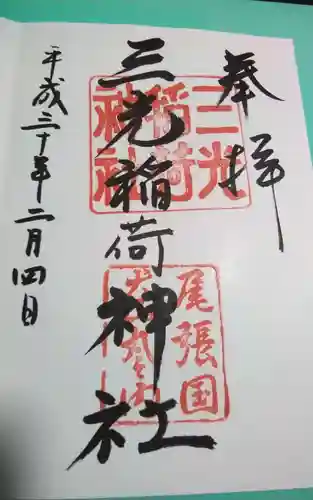 奉拝
三光稲荷神社
三光
稲荷
神社
尾張国
平成三十年二月四日